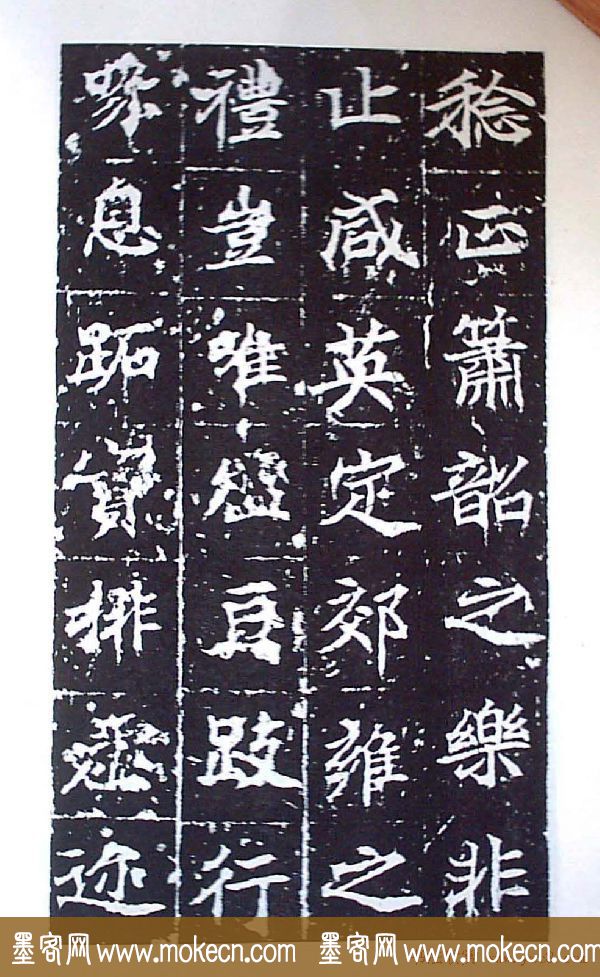 稔正簫韶之樂非
止咸英定郊雍之
禮豈唯豆跂行
喙息跖實排虛迹
墨客网 www.mokecn.com 墨客网 www.mokecn.com